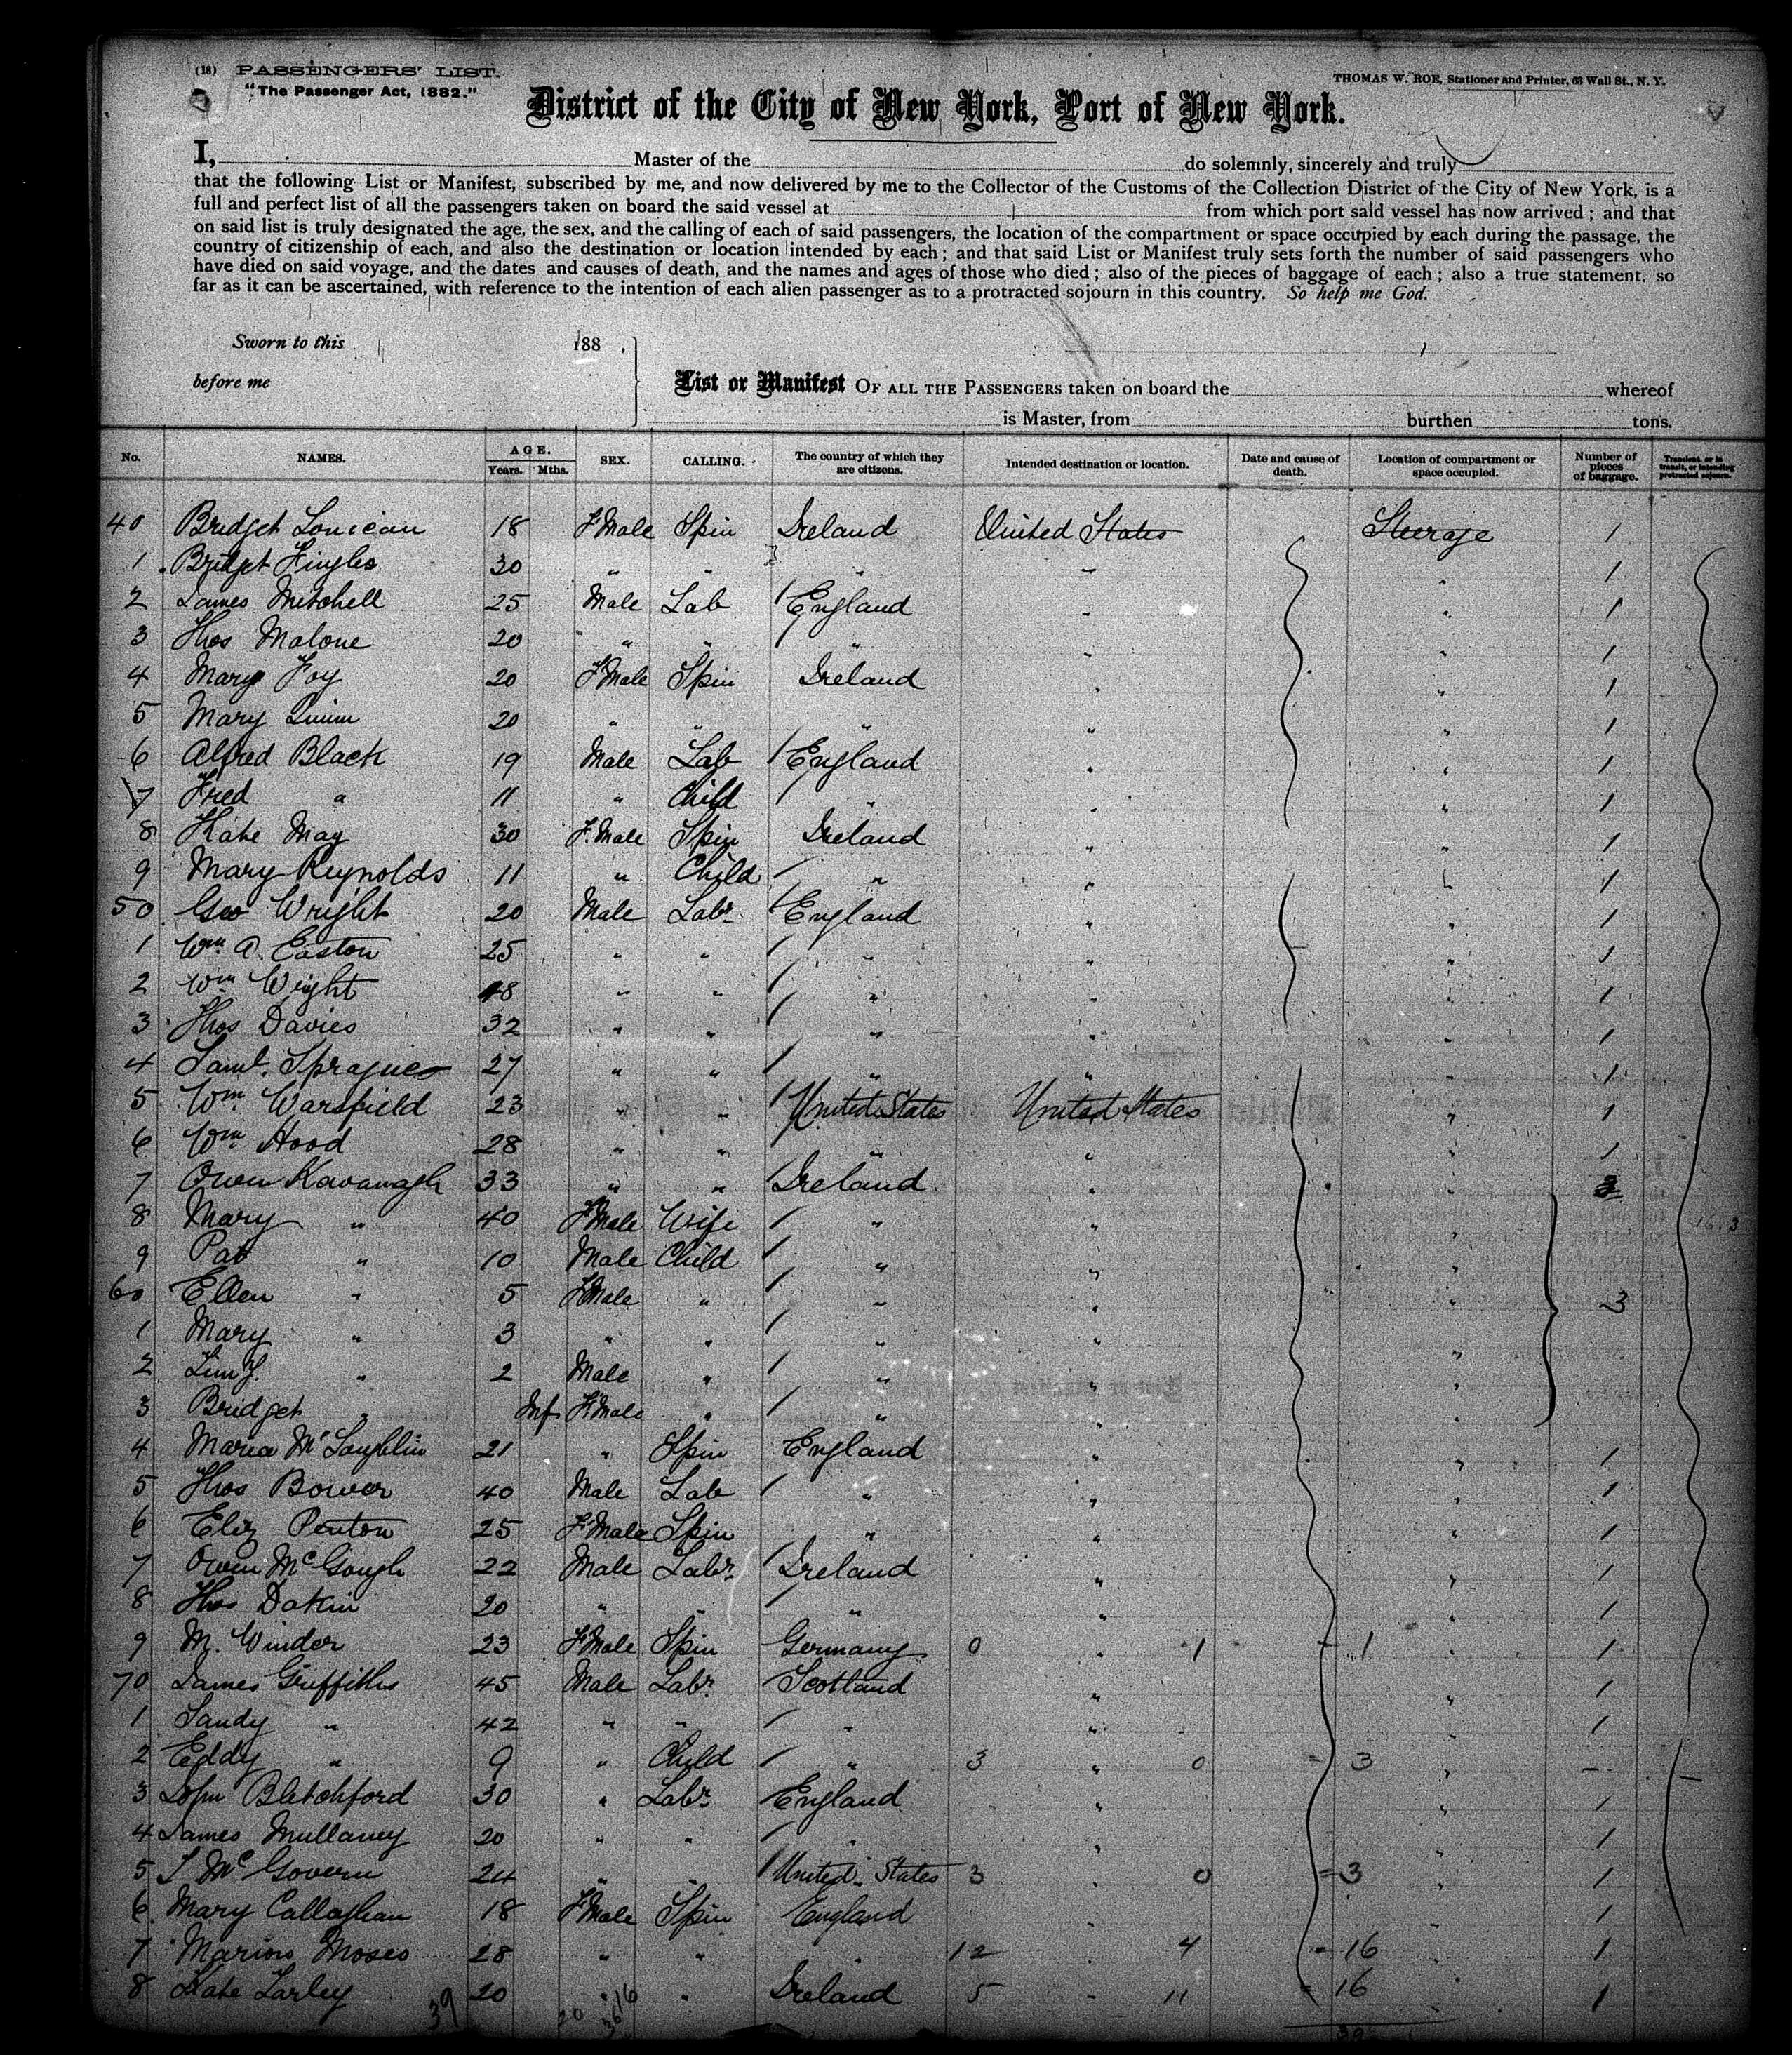 (18) PASSENGERS' LIST.
THOMAS W. ROE, Stationer and Printer, 63 Wall St., N. Y.
"The Passenger Act, 1882."
District of the City of New York, Port of New York.
I, Master of the do solemnly, sincerely and truly
that the following List or Manifest, subscribed by me, and now delivered by me to the Collector of the Customs of the Collection District of the City of New York, is a
full and perfect list of all the passengers taken on board the said vessel at from which port said vessel has now arrived ; and that
on said list is truly designated the age, the sex, and the calling of each of said passengers, the location of the compartment or space occupied by each during the passage, the
country of citizenship of each, and also the destination or location intended by each ; and that said List or Manifest truly sets forth the number of said passengers who
have died on said voyage, and the dates and causes of death, and the names and ages of those who died ; also of the pieces of baggage of each ; also a true statement, so
far as it can be ascertained, with reference to the intention of each alien passenger as to a protracted sojourn in this country. So help me God.
Sworn to this 188 .
before me
List or Manifest OF ALL THE PASSENGERS taken on board the whereof
is Master, from burthen tons.
No. NAMES. AGE. Years. Mths. SEX. CALLING. The country of which they are citizens. Intended destination or location. Date and cause of death. Location of compartment or space occupied. Number of pieces of baggage. Transient, or in transit, or intending protracted sojourn.
40 Bridget 18 F.Male Spin Ireland United States Steerage 1
1 Bridget 30 " " " " " 1
2 James Mitchell 25 Male Lab England " " 1
3 Thos Malone 20 " " " " " 1
4 Mary Foy 20 F.Male Spin Ireland " " 1
5 Mary Quinn 20 " " " " " 1
6 Alfred Black 19 Male Lab England " " 1
7 Fred " 11 " Child " " " 1
8 Kate May 30 F.Male Spin Ireland " " 1
9 Mary Reynolds 11 " Child " " " 1
50 Geo Wright 20 Male Labr England " " 1
1 Wm A. Easton 25 " " " " " 1
2 Wm Wight 48 " " " " " 1
3 Thos Davies 32 " " " " " 1
4 Saml. Sprague 27 " " " " " 1
5 Wm Warsfield 23 " " United States United States " 1
6 Wm Hood 28 " " " " " 1
7 Owen Kavanagh 33 " " Ireland " "
8 Mary " 40 F.Male Wife " " "
9 Pat " 10 Male Child " " "
60 Ellen " 5 F.Male " " " " 3
1 Mary " 3 " " " " "
2 " 2 Male " " " "
3 Bridget " Inf F.Male " " " "
4 Maria McLoughlin 21 " Spin England " " 1
5 Thos Bower 40 Male Lab " " " 1
6 Eliz Penton 25 F.Male Spin " " " 1
7 Owen McGough 22 Male Labr Ireland " " 1
8 Thos Dakin 20 " " " " " 1
9 M. Winder 23 F.Male Spin Germany 0 " 1 - 1 " 1
70 James Griffiths 45 Male Labr Scotland " " 1
1 Sandy " 42 " " " " " 1
2 Eddy " 9 " Child " 3 " 0 = 3 " -
3 John Blatchford 30 " Labr England " " 1
4 James Mullaney 20 " " " " " 1
5 J McGovern 24 " " United States 3 " 0 = 3 " 1
6 Mary Callaghan 18 F.Male Spin England " " 1
7 Marion Moses 28 " " " 12 4 - 16 " 1
8 Kate Larley 20 " " Ireland 5 - 11 = 16 " 1
39 20 3616 39